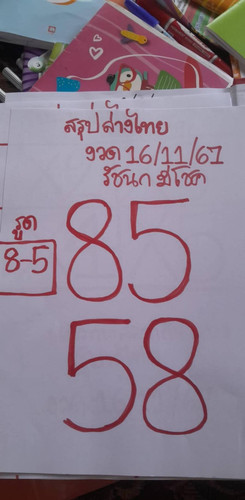 สรุปล่างไทย
งวด 16/11/67
รัชนก มีโชค
รูด
8-5
85
58